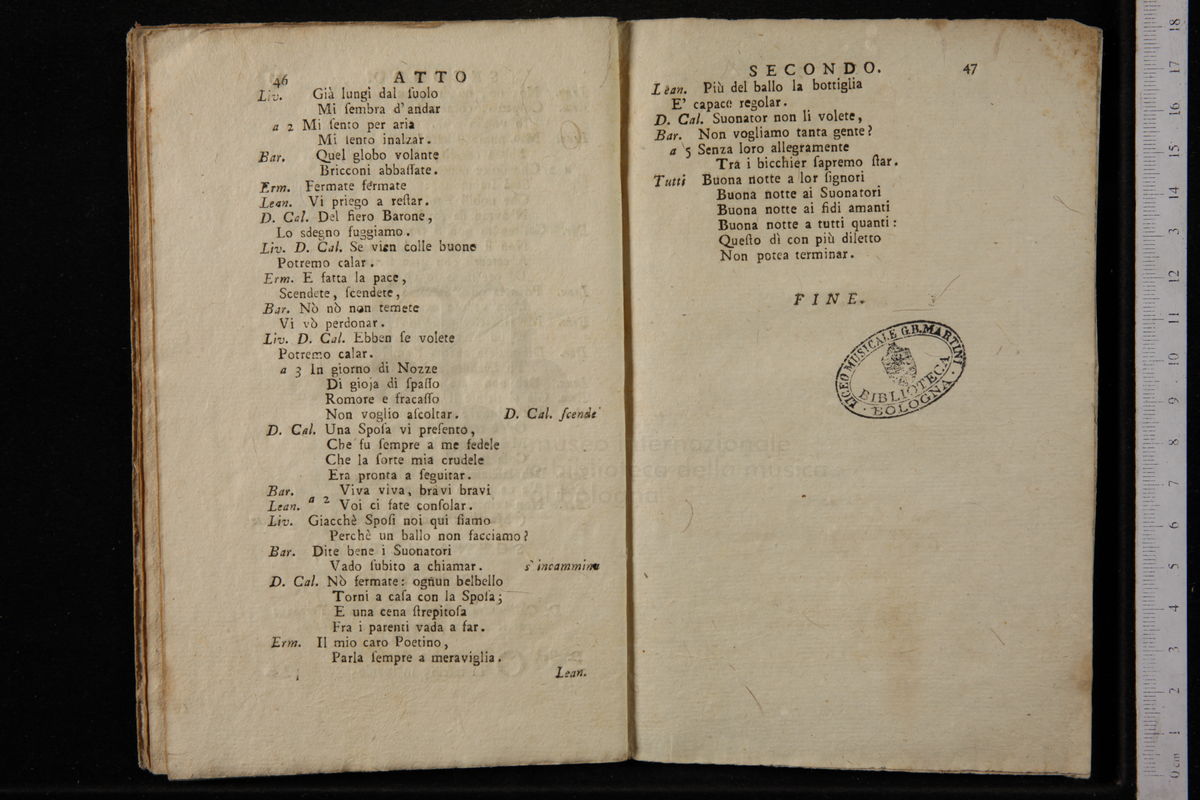 46 ATTO
Liv. Già lungi dal ſuolo
Mi ſembra d'andar
a 2 Mi ſento per aria
Mi ſento inalzar.
Bar. Quel globo volante
Bricconi abbaſſate.
Erm. Fermate fermate
Lean. Vi priego a reſtar.
D. Cal. Del fiero Barone,
Lo sdegno fuggiamo.
Liv. D. Cal. Se vien colle buone
Potremo calar.
Erm. E fatta la pace,
Scendete, ſcendete,
Bar. Nò nò non temete
Vi vò perdonar.
Liv. D. Cal. Ebben ſe volete
Potremo calar.
a 3 In giorno di Nozze
Di gioja di ſpaſſo
Romore e fracaſſo
Non voglio aſcoltar. D. Cal. ſcende
D. Cal. Una Spoſa vi preſento,
Che fu ſempre a me fedele
Che la ſorte mia crudele
Era pronta a ſeguitar.
Bar. Viva viva, bravi bravi
Lean. a 2 Voi ci fate conſolar.
Liv. Giacchè Spoſi noi qui ſiamo
Perchè un ballo non facciamo?
Bar. Dite bene i Suonatori
Vado ſubito a chiamar. s'incammina
D. Cal. Nò fermate: ognun belbello
Torni a caſa con la Spoſa;
E una cena ſtrepitoſa
Fra i parenti vada a far.
Erm. Il mio caro Poetino,
Parla ſempre a meraviglia.
Lean.
SECONDO. 47
Lean. Più del ballo la bottiglia
E' capace regolar.
D. Cal. Suonator non li volete,
Bar. Non vogliamo tanta gente?
a 5 Senza loro allegramente
Tra i bicchier ſapremo ſtar.
Tutti Buona notte a lor ſignori
Buona notte ai Suonatori
Buona notte ai fidi amanti
Buona notte a tutti quanti:
Queſto dì con più diletto
Non potea terminar.
FINE.
LICEO MUSICALE G.B. MARTINI
BIBLIOTECA
BOLOGNA
museo internazionale
e biblioteca della musica
di bologna
0 cm 1 2 3 4 5 6 7 8 9 10 11 12 13 14 15 16 17 18